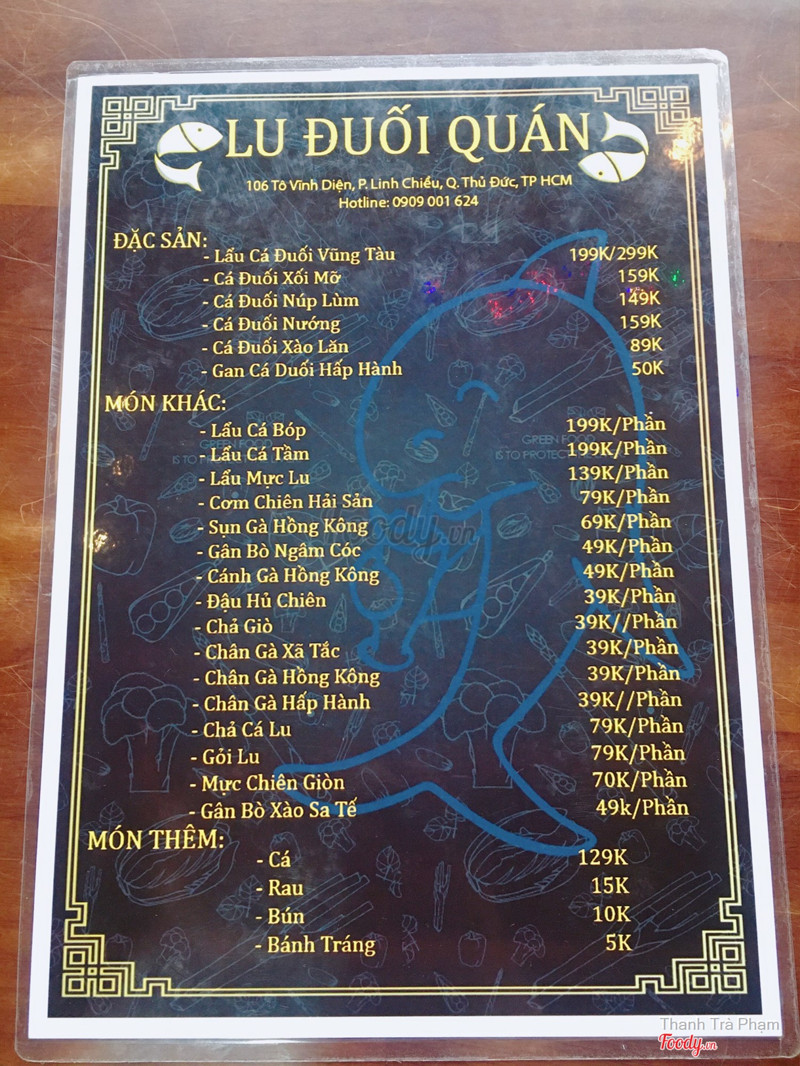 LU ĐUỐI QUÁN
106 Tô Vĩnh Diện, P. Linh Chiểu, Q. Thủ Đức, TP HCM
Hotline: 0909 001 624
ĐẶC SẢN:
- Lẩu Cá Đuối Vũng Tàu 199K/299K
- Cá Đuối Xối Mỡ 159K
- Cá Đuối Núp Lùm 149K
- Cá Đuối Nướng 159K
- Cá Đuối Xào Lăn 89K
- Gan Cá Duối Hấp Hành 50K
MÓN KHÁC:
- Lẩu Cá Bóp 199K/Phần
GREEN FOOD
IS TO PROTECT
GREEN FOOD
IS TO PROTECT
- Lẩu Cá Tầm 199K/Phần
- Lẩu Mực Lu 139K/Phần
- Cơm Chiên Hải Sản 79K/Phần
- Sụn Gà Hồng Kông 69K/Phần
Foody.vn
- Gân Bò Ngâm Cóc 49K/Phần
- Cánh Gà Hồng Kông 49K/Phần
- Đậu Hủ Chiên 39K/Phần
- Chả Giò 39K//Phần
- Chân Gà Xã Tắc 39K/Phần
- Chân Gà Hồng Kông 39K/Phần
- Chân Gà Hấp Hành 39K//Phần
- Chả Cá Lu 79K/Phần
- Gỏi Lu 79K/Phần
- Mực Chiên Giòn 70K/Phần
- Gân Bò Xào Sa Tế 49k/Phần
MÓN THÊM:
- Cá 129K
- Rau 15K
- Bún 10K
- Bánh Tráng 5K
Thanh Trà Phạm
Foody.vn